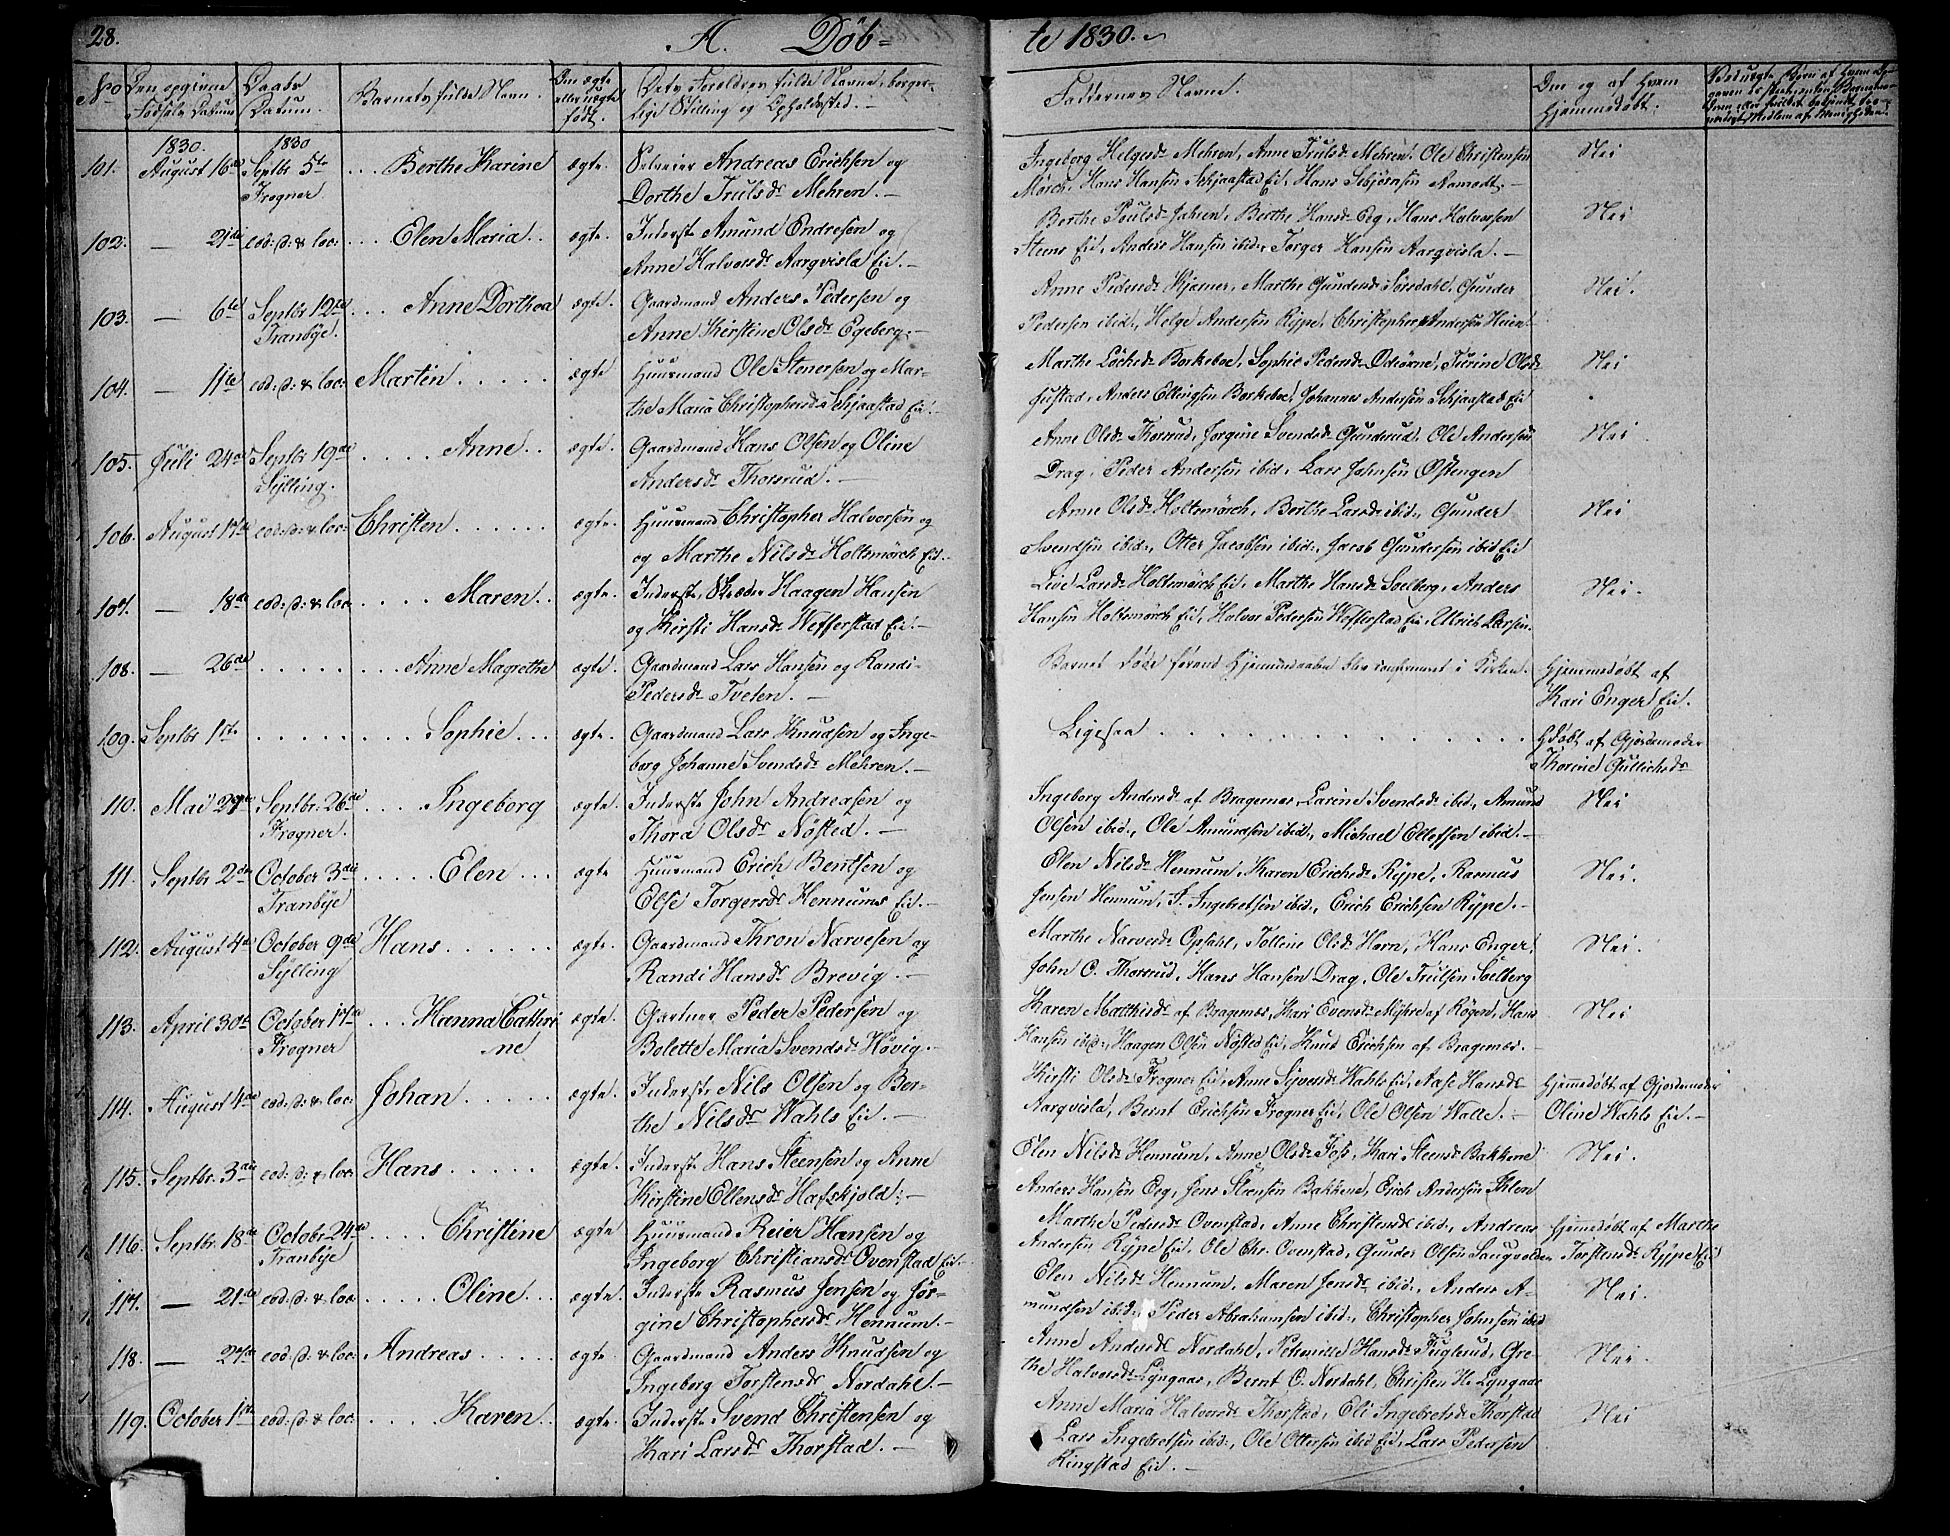 28.
A. Døb=
te 1830.
No
Den opgivne
Fødsels Datum
Daabs
Datum
Barnets fulde Navn.
Om ægte
eller uægte
født.
Dets Forældres fulde Navne, borger-
lige Stilling og Opholdssted.
Faddernes Navne.
Om og af hvem
hjemmedøbt.
1830.
1830
101. August 16de Septbr 5te Frogner ... Berthe Karine ægte.
Selveier Andreas Erichsen og
Dorthe Trulsdr Mehren.
Ingeborg Helgesdr Mehren, Anne Trulsdr Mehren, Ole Christensen
Mørch, Hans Hansen Schjaastad Eie, Hans Aamodt.
Nei
102. — 21de eod: d: & loc: ... Elen Maria ægte.
Inderst Amund Endresen og
Anne Halvorsdr Aarqvisla Eie.
Berthe Poulsdr Jahren, Berthe Hansdr Eeg, Hans Halvorsen
Steens Eie, Anders Hansen ibid:, Torger Hansen Aarqvisla.
Nei
103. — 6te Septbr 12te Tranbye. ... Anne Dorthea ægte.
Gaardmand Anders Pedersen og
Anne Kirstine Olsdr Egeberg.
Anne Pedersdr Kjøsner, Marthe Gundersdr Sørsdahl, Gunder
Pedersen ibid:, Helge Andersen Rÿpe, Christopher Andersen Heien.
Nei.
104. — 11te eod: d: & loc: Martin ægte
Huusmand Ole Stenersen og Mar-
the Maria Christophersdr Schjaastad Eie.
Marthe Borkeboe, Sophie Pedersdr Turine Olsdr
Justad, Anders Ellingsen Borkeboe, Johannes Andersen Schjaastad Eie
Nei
105. Juli 24de Septbr 19de Sylling. .... Anne ægte.
Gaardmand Hans Olsen og Oline
Andersdr Thorsrud.
Anne Olsdr Thorsrud, Jørgine Svendsdr Gunderud, Ole Andersen
Drag, Peder Andersen ibid:, Lars Johnsen Østengen
Nei
106. August 17de eod: d: & loc: Christen ægte.
Huusmand Christopher Halvorsen og
og Marthe Nilsdr Holtsmörch Eie.
Anne Olsdr Holtsmörch, Berthe Larsdr ibid:, Gunder
Svendsen ibid:, Otter Jacobsen ibid:, Jacob Gundersen ibid Eie
Nei
107. — 18de eod: d: & loc: .... Maren ægte.
Inderst, Skræder Haagen Hansen
og Kirsti Hansdr Wefferstad Eie.
Live Larsdr Holtsmörch Eie, Marthe Hansdr Soelberg, Anders
Hansen Holtsmörch Eie, Halvor Pedersen Wefferstad Eie, Ulrich Larsen.
Nei.
108. — 26de Anne Magrethe ægte.
Gaardmand Lars Hansen og Randi
Pedersdr Tveten.
Barnet døde førend Hjemmedaaben blev confirmeret i Kirken.
Hjemmedøbt af
Kari Enger Eie.
109. Septbr 1ste Sophie ægte.
Gaardmand Lars Knudsen og Inge-
borg Johanne Svendsdr Mehren.
Ligesaa
Hdøbt af Gjordemoder
Thorine Gullichsdr
110. Mai 27de Septbr 26de Frogner. .... Ingeborg ægte.
Inderste John Andreasen og
Thora Olsdr Nøsted.
Ingeborg Andersdr af Bragernes, Larine Svendsdr ibid:, Amund
Olsen ibid:, Ole Amundsen ibid:, Michael Ellefsen ibid.
Nei
111. Septbr 2den October 3die Tranbÿe ..... Elen ægte
Huusmand Erich Bentsen og
Else Torgersdr Hennums Eie.
Elen Nilsdr Hennum, Karen Erichsdr Rÿpe, Rasmus
Jensen Hennum, F. Ingebretsen ibid:, Erich Erichsen Rÿpe.
Nei.
112. August 4de October 9de Sylling Hans ægte.
Gaardmand Thron Narvesen og
Randi Hansdr Brevig.
Marthe Narvesdr Opsahl, Tolline Olsdr Horn, Hans Enger,
John C. Thorsrud, Hans Hansen Drag, Ole Trulsen Soelberg
Nei.
113. April 30te October 17de Frogner ... Hanna Cathri
ne ægte.
Gartner Peder Pedersen og
Bolette Maria Svendsdr Høvig.
Karen Matthisdr af Bragernæs, Kari Evensdr Mÿhre af Röyen, Hans
Hansen ibid:, Haagen Olsen Nøsted Eie, Knud Erichsen af Bragernæs.
Nei
114. August 4de eod: d: & loc: Johan ægte.
Inderst Nils Olsen og Ber-
the Nilsdr Wahls Eie.
Kirsti Olsdr Frogner Eie, Anne Siversdr Wahls Eie, Aase Hansdr
Aarqvisla, Bernt Erichsen Frogner Eie, Ole Olsen Walle.
Hjemmedøbt af Gjordemoder
Oline Wahls Eie.
115. Septbr. 3die eod: d: & loc: Hans ægte.
Inderst Hans Steensen og Anne
Kirstine Ellensdr Hafskjold.
Elen Nilsdr Hennum, Anne Olsdr Foss, Kari Steensdr Bakkene
Anders Hansen Eeg, Jens Steensen Bakkene, Erich Andersen Ihlen
Nei.
116. Septbr. 18de October 24de Tranbÿe .... Christine ægte
Huusmand Reier Hansen og
Ingeborg Christiansdr Ovenstad Eie.
Marthe Pedersdr Ovenstad, Anne Christensdr ibid:, Andreas
Andersen Rÿpe Eie, Ole Chr. Ovenstad, Gunder Olsen Saugvolden
Hjemmedøbt af Marthe
Torstensdr Rÿpe Eie
117. — 21de eod: d: & loc: ..... Oline ægte.
Inderste Rasmus Jensen og Jør-
gine Christophersdr Hennum.
Elen Nilsdr Hennum, Maren Jensdr ibid:, Anders A-
mundsen ibid:, Peder Abrahamsen ibid:, Christopher Johnsen ibid
Nei.
118. — 27de eod: d: & loc: Andreas ægte.
Gaardmand Anders Knudsen og
Ingeborg Torstensdr Nordahl.
Anne Andersdr Nordahl, Petronille Hansdr Fuglerud, Gre-
the Halvorsdr Lÿngaas, Bernt O. Nordahl, Christen H. Lyngaas
Nei.
119. October 1ste eod: d: & loc: .... Karen ægte.
Inderst Svend Christensen og
Kari Larsdr Thorstad.
Anne Maria Halvorsdr Thorstad, Eli Ingebretsdr Thorstad
Lars Ingebretsen ibid:, Ole Ottersen ibid Eie, Lars Pedersen
Kingstad Eie.
Nei